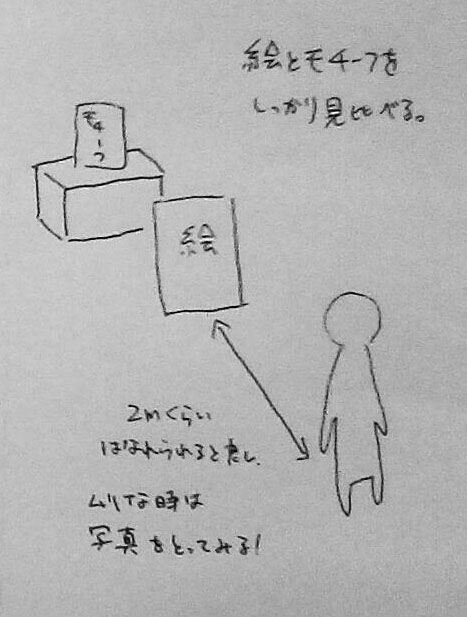 絵とモチーフを
しっかり見比べる。
モチーフ
絵
2mくらい
はなれられると良し、
ムリな時は
写真をとってみる!